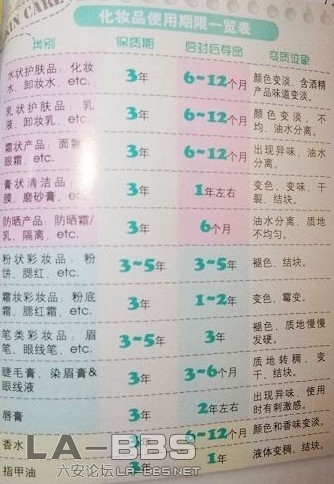 SKIN CARE
化妆品使用期限一览表
类别 保质期 启封后寿命 变质迹象
水状护肤品：化妆水、卸妆水、etc. 3年 6~12个月 颜色变淡、含酒精产品味道变淡。
乳状护肤品：乳液、卸妆乳、etc. 3年 6~12个月 颜色变淡、不均、油水分离。
霜状产品：面霜、眼霜、etc. 3年 6~12个月 出现异味、油水分离。
膏状清洁品：膜、磨砂膏、etc. 3年 1年左右 变色、变味、干裂、结块。
防晒产品：防晒霜/乳、隔离、etc. 3年 6个月 油水分离、质地不均匀。
粉状彩妆品：粉饼、腮红、etc. 3~5年 3~5年 褪色、结块。
霜妆彩妆品：粉底霜、腮红霜、etc. 3年 1~2年 变色、霉变。
笔类彩妆品：眉笔、眼线笔、etc. 3~5年 3年 褪色、质地慢慢发硬。
睫毛膏，染眉膏&眼线液 3年 3~6个月 质地转稠、变干、结块。
唇膏 3年 2年左右 出现异味、使用时有刺激感。
香水 3年 6~12个月 颜色和香味变淡。
指甲油 3年 1年 液体变稠、结块。
LA-BBS
六安论坛LA-BBS.NET